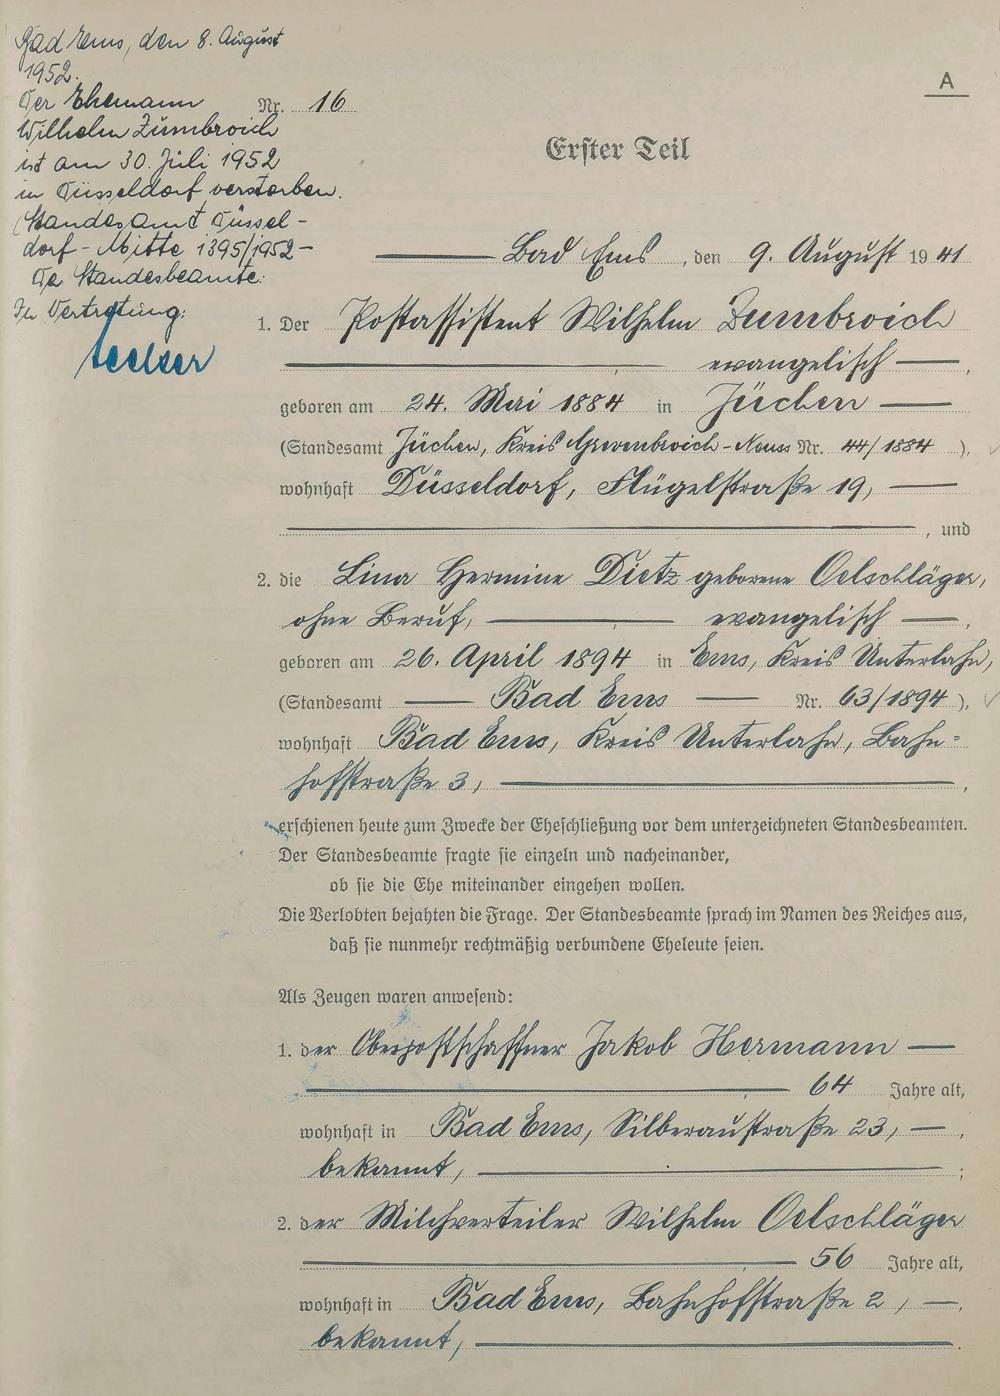 Bad Ems, den 8. August
1952.
Der Ehemann
Wilhelm Zumbroich
ist am 30. Juli 1952
in Düsseldorf verstorben.
(Standesamt Düssel-
dorf-Mitte 1395/1952-
Der Standesbeamte:
In Vertretung:
A
Nr. 16
Erster Teil
Bad Ems, den 9. August 1941
1. Der Postassistent Wilhelm Zumbroich
evangelisch,
geboren am 24. Mai 1884 in Jüchen
(Standesamt Jüchen, Kreis Grevenbroich-Neuss Nr. 44/1884),
wohnhaft Düsseldorf, Flügelstraße 19,
, und
2. die Lina Hermine Dietz geborene Oelschläger,
ohne Beruf, evangelisch,
geboren am 26. April 1894 in Ems, Kreis Unterlahn,
(Standesamt Bad Ems Nr. 63/1894),
wohnhaft Bad Ems, Kreis Unterlahn, Bahn=
hofstraße 3,
erschienen heute zum Zwecke der Eheschließung vor dem unterzeichneten Standesbeamten.
Der Standesbeamte fragte sie einzeln und nacheinander,
ob sie die Ehe miteinander eingehen wollen.
Die Verlobten bejahten die Frage. Der Standesbeamte sprach im Namen des Reiches aus,
daß sie nunmehr rechtmäßig verbundene Eheleute seien.
Als Zeugen waren anwesend:
1. der Oberpostschaffner Jakob Hermann
64 Jahre alt,
wohnhaft in Bad Ems, Silberaustraße 23,
bekannt, ;
2. der Milchverteiler Wilhelm Oelschläger
56 Jahre alt,
wohnhaft in Bad Ems, Bahnhofstraße 2,
bekannt, .